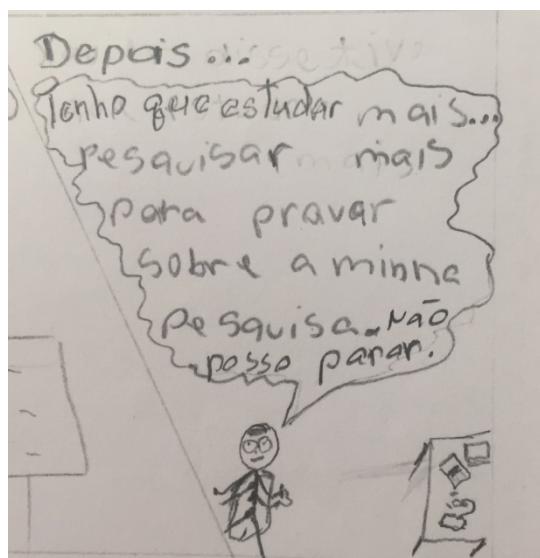 Depois...
Tenho que estudar mais...
pesquisar mais
para pravar
sobre a minha
pesquisa. Não
posso parar.